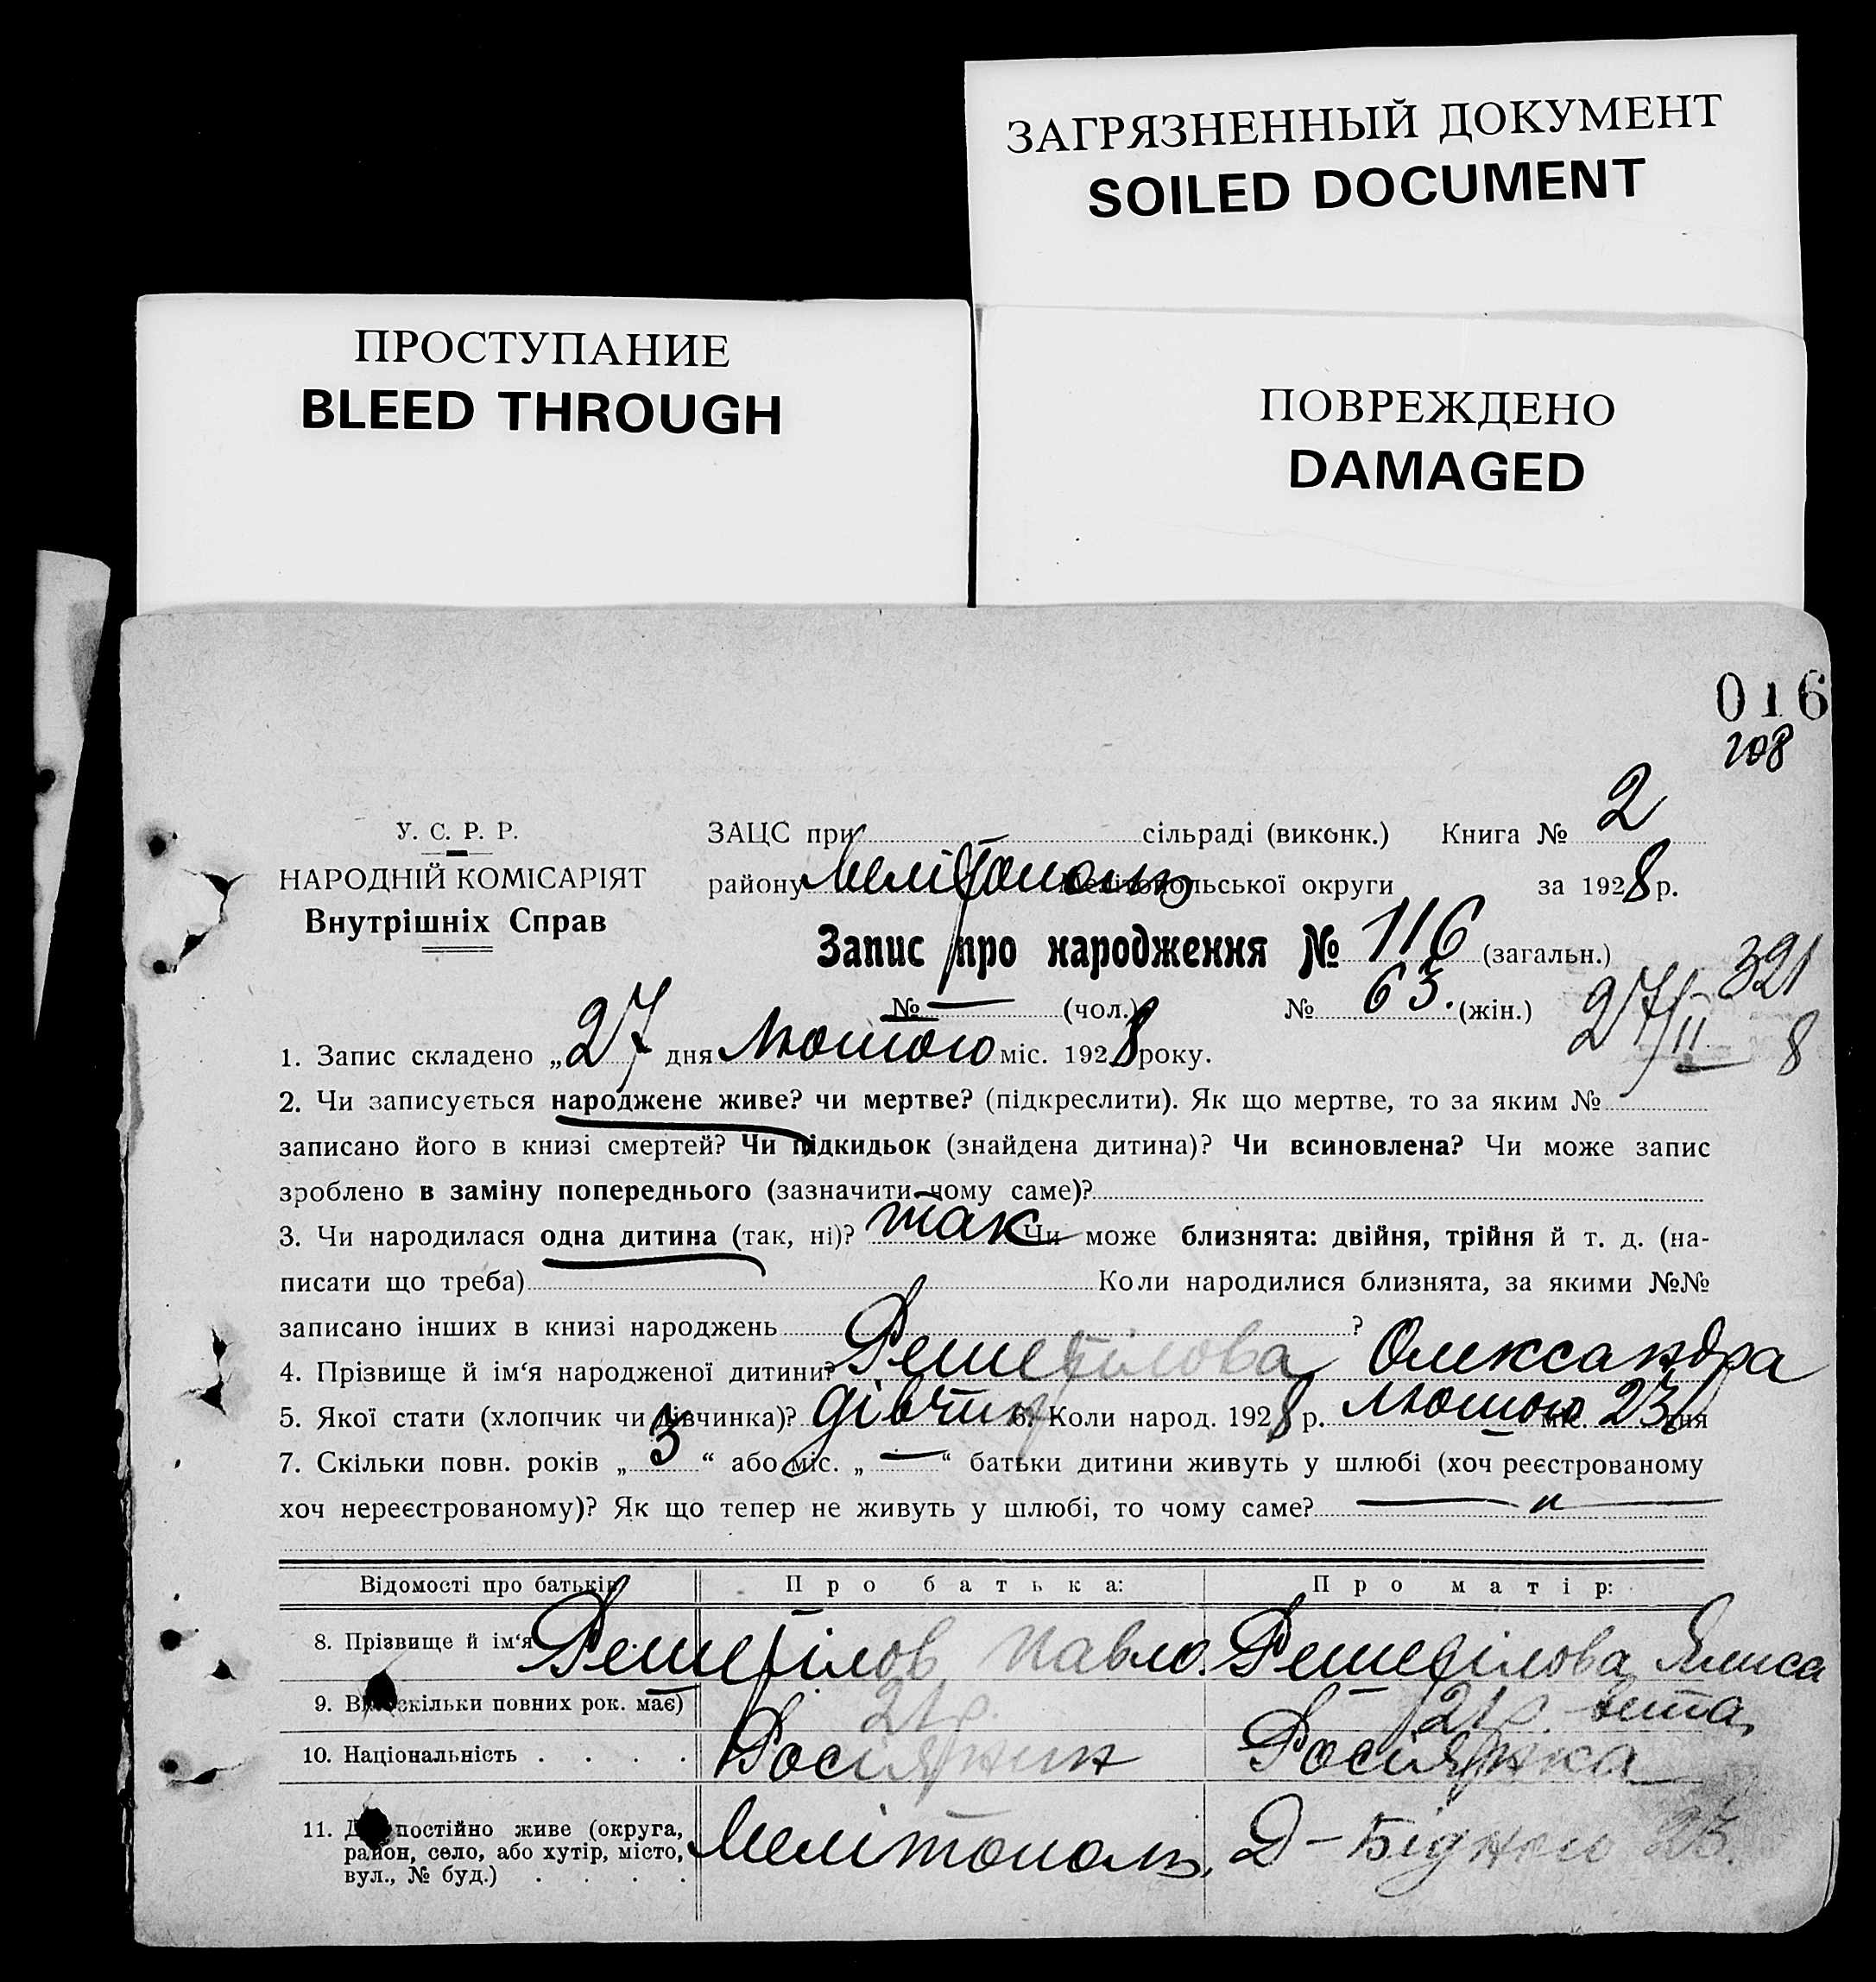 ЗАГРЯЗНЕННЫЙ ДОКУМЕНТ
SOILED DOCUMENT
ПРОСТУПАНИЕ
BLEED THROUGH
ПОВРЕЖДЕНО
DAMAGED
016
208
У. С. Р. Р.
НАРОДНІЙ КОМІСАРІЯТ
Внутрішніх Справ
ЗАЦС при сільраді (виконк.) Книга № 2
району Мелітополь Мелітопольської округи за 1928 р.
Запис про народження № 116 (загальн.)
321
№ — (чол.) № 63. (жін.)
27/II 8
1. Запис складено „27 дня Лютого міс. 1928 року.
2. Чи записується народжене живе? чи мертве? (підкреслити). Як що мертве, то за яким №
записано його в книзі смертей? Чи підкидьок (знайдена дитина)? Чи всиновлена? Чи може запис
зроблено в заміну попереднього (зазначити чому саме)?
3. Чи народилася одна дитина (так, ні)? так Чи може близнята: двійня, трійня й т. д. (на-
писати що треба) Коли народилися близнята, за якими №№
записано інших в книзі народжень ?
4. Прізвище й ім'я народженої дитини? Решетілова Олександра
5. Якої стати (хлопчик чи дівчинка)? дівчин 6. Коли народ. 1928 р. Лютого міс. 23 дня
7. Скільки повн. років „ 3 “ або міс. „ — “ батьки дитини живуть у шлюбі (хоч реєстрованому
хоч нереєстрованому)? Як що тепер не живуть у шлюбі, то чому саме? — „ —
Відомості про батьків Про батька: Про матір:
8. Прізвище й ім'я Решетілов Павло. Решетілова Ялиса
9. Вік скільки повних рок. має) 21 р. 21 р. вета,
10. Національність . . . . Росіянин Росіянка
11. Де постійно живе (округа,
район, село, або хутір, місто,
вул., № буд.) . . . . Мелітополь, Д-Бідного 25.